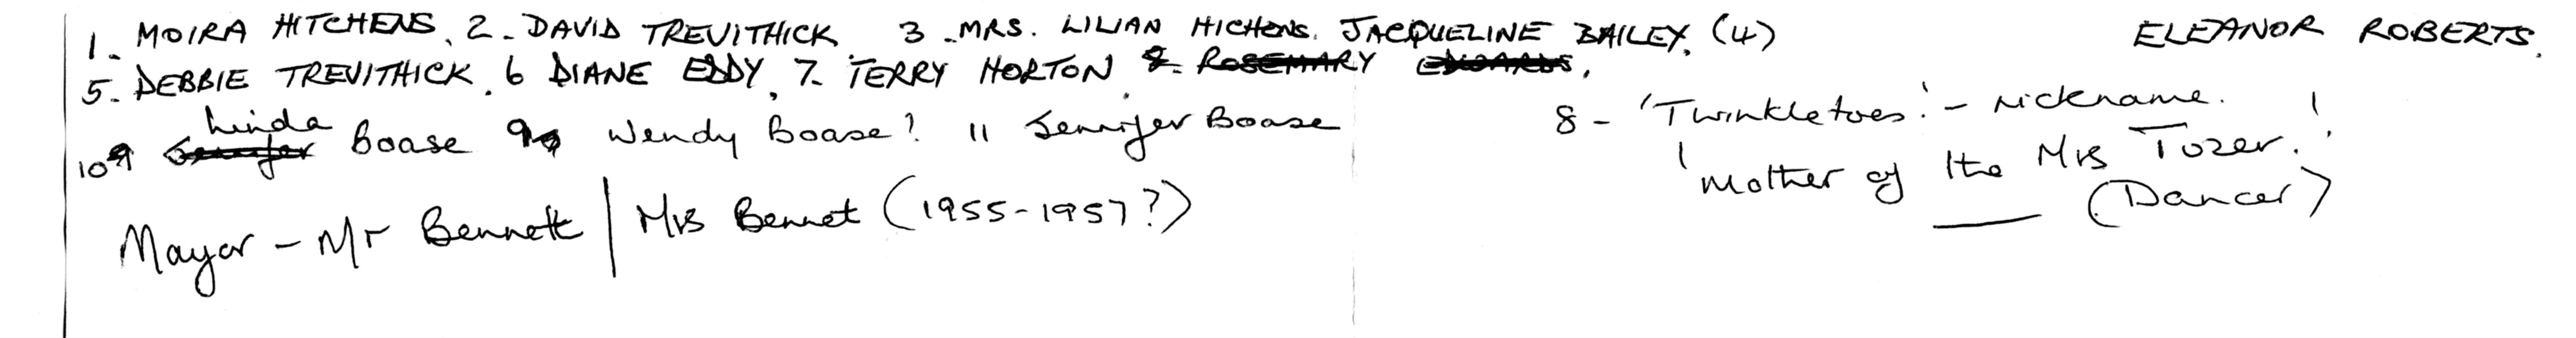 1. MOIRA HITCHENS, 2. DAVID TREVITHICK 3. MRS. LILIAN HICHENS. JACQUELINE BAILEY. (4) ELEANOR ROBERTS.
5. DEBBIE TREVITHICK. 6 DIANE EDDY, 7. TERRY HORTON, 8. ROSEMARY EDWARDS.
8 - 'Twinkletoes' - nickname.
Linda
10 Jennifer Boase 9 Wendy Boase? 11 Jennifer Boase
'mother of the Mrs Tozer.'
(Dancer)
Mayor - Mr Bennett | Mrs Bennet (1955-1957?)